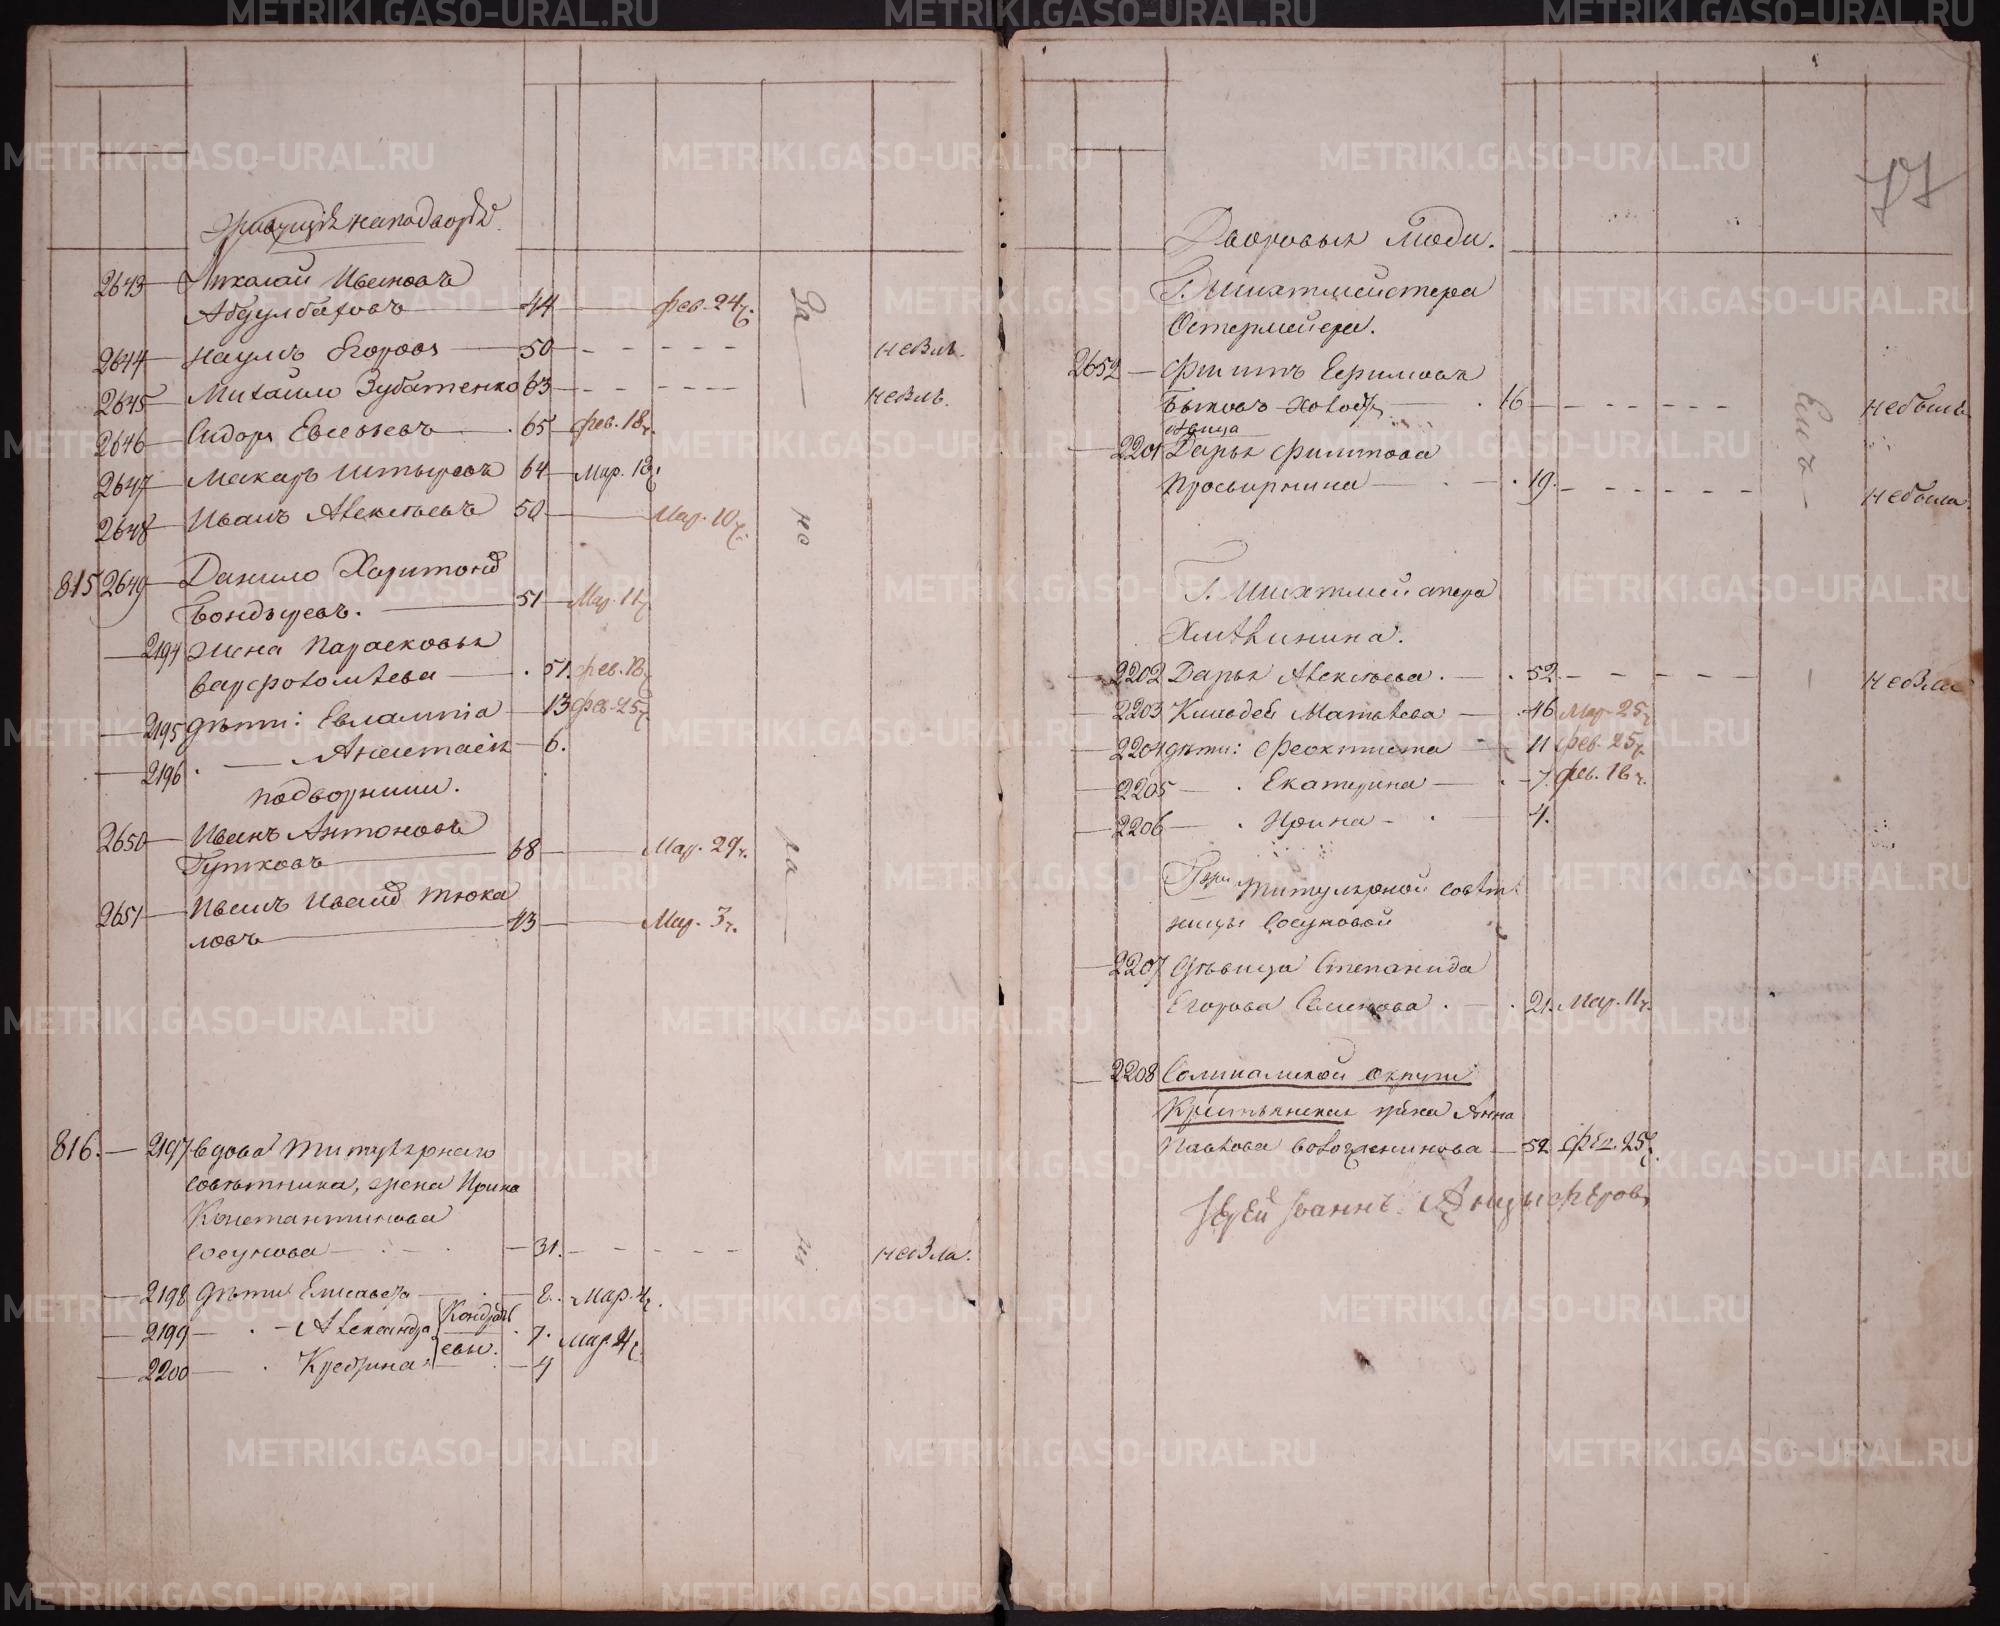 Живущіе на подворьѣ
2643 Николай Ивановъ
Абдулбаховъ 44 фев. 24 ч.
2644 Наумъ Егоровъ 50 небылъ.
2645 Михайло Зубатенко 63 небылъ.
2646 Сидоръ Евсеевъ 65 фев. 18 ч.
2647 Макаръ 64 Мар. 18 ч.
2648 Иванъ Алексѣевъ 50 Мар. 10 ч.
815 2649 Данило Харитоновъ
Бондыревъ. 51 Мар. 11 ч.
2194 жена Парасковья
Варфоломѣева 51. фев. 18 ч.
2195 дѣти: Евлампіа 13 фев. 25 ч.
2196 Анастасія 6.
подворники.
2650 Иванъ Антоновъ
68 Мар. 29 ч.
2651 Иванъ Ивановъ Тюка
ловъ 43 Мар. 3 ч.
816. 2197 вдова титулярнаго
совѣтника, жена Ирина
Константинова
Сосунова 31. небыла.
2198 дѣти Елисавета 8. Мар. 4 ч.
2199 Александра Кондрать 7. Мар. 4 ч.
евы.
2200 4
77
Дворовыя люди.
Г. Шихтмейстера
Остермейера.
2652 Филипъ Ефимовъ
Быковъ холостъ 16 небылъ.
дѣвица
2201 Дарья Филипова
Просвирнина 19. небыла.
Г. Шихтмейстера
Хлѣбинина.
2202 Дарья Алексѣева. 52. небыла
2203 Матвѣева 46 Мар. 25 ч.
2204 дѣти: Феоктиста 11 фев. 25 ч.
2205 Екатерина 7. фев. 18 ч.
2206 Ирина 4.
Гжи титулярной совѣт
ницы Сосуновой
2207 дѣвица Степанида
Егорова Семенова. 21. Мар. 11 ч.
2208 Соликамской округи
Крестьянская жена Анна
Павлова 52 фев. 25 ч.
Іерей Іоаннъ Анцыферовъ